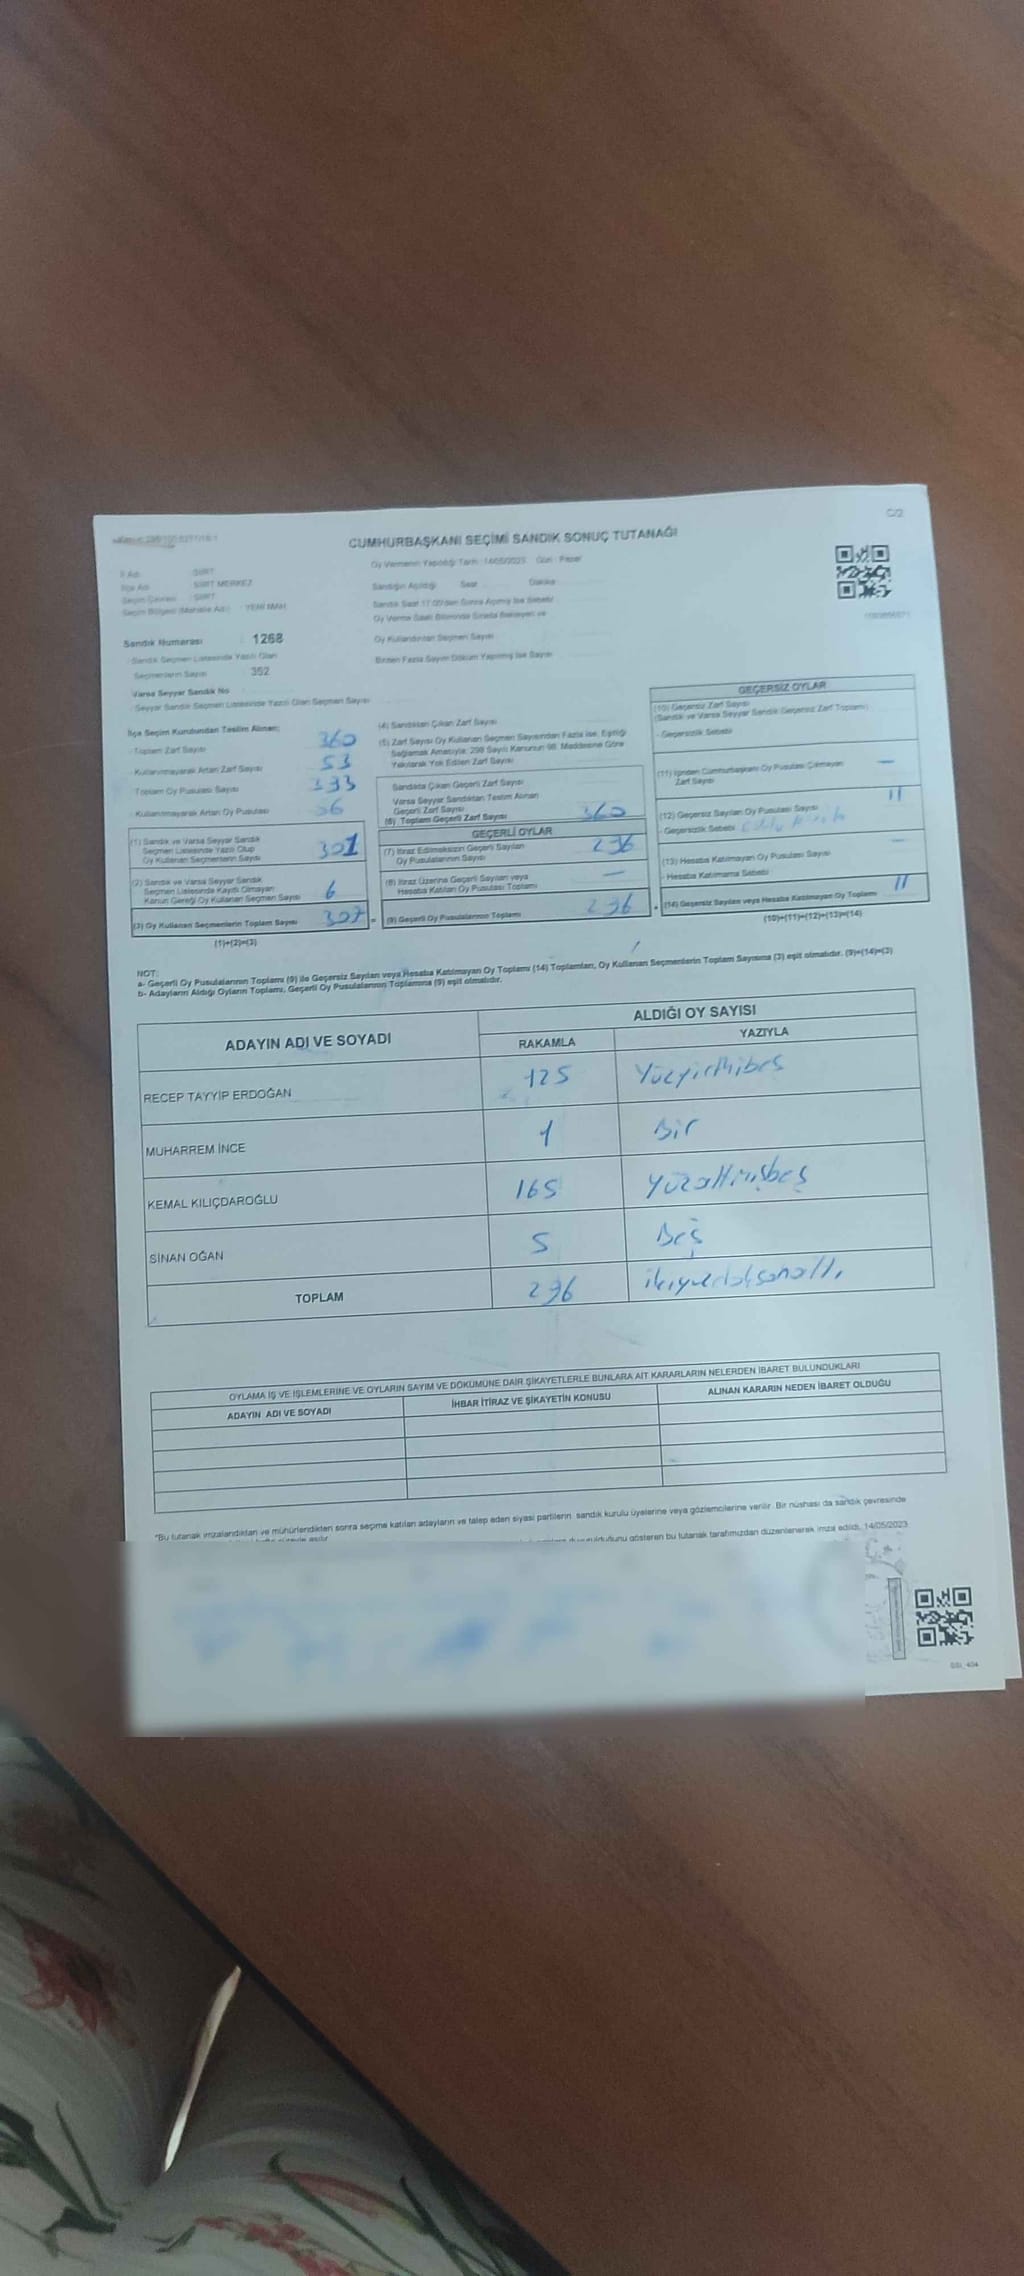 C/2
CUMHURBAŞKANI SEÇİMİ SANDIK SONUÇ TUTANAĞI
Oy Vermenin Yapıldığı Tarih : 14/05/2023 Gün : Pazar
İl Adı : SİİRT
İlçe Adı : SİİRT MERKEZ
Seçim Çevresi : SİİRT
Seçim Bölgesi (Mahalle Adı) : YENİ MAH.
Sandığın Açıldığı Saat Dakika
Sandık Saat 17:00'den Sonra Açılmış İse Sebebi
Oy Verme Saati Bitiminde Sırada Bekleyen ve
Oy Kullandırılan Seçmen Sayısı
Birden Fazla Sayım Döküm Yapılmış İse Sayısı
Sandık Numarası : 1268
Sandık Seçmen Listesinde Yazılı Olan
Seçmenlerin Sayısı 352
Varsa Seyyar Sandık No
Seyyar Sandık Seçmen Listesinde Yazılı Olan Seçmen Sayısı
İlçe Seçim Kurulundan Teslim Alınan;
Toplam Zarf Sayısı 360
Kullanılmayarak Artan Zarf Sayısı 53
Toplam Oy Pusulası Sayısı 333
Kullanılmayarak Artan Oy Pusulası
(1) Sandık ve Varsa Seyyar Sandık
Seçmen Listesinde Yazılı Olup
Oy Kullanan Seçmenlerin Sayısı 301
(2) Sandık ve Varsa Seyyar Sandık
Seçmen Listesinde Kayıtlı Olmayan
Kanun Gereği Oy Kullanan Seçmen Sayısı 6
(3) Oy Kullanan Seçmenlerin Toplam Sayısı 307 =
(1)+(2)=(3)
(4) Sandıktan Çıkan Zarf Sayısı
(5) Zarf Sayısı Oy Kullanan Seçmen Sayısından Fazla ise, Eşitliği
Sağlamak Amacıyla; 298 Sayılı Kanunun 98. Maddesine Göre
Yakılarak Yok Edilen Zarf Sayısı
Sandıkta Çıkan Geçerli Zarf Sayısı
Varsa Seyyar Sandıktan Teslim Alınan
Geçerli Zarf Sayısı
(6) Toplam Geçerli Zarf Sayısı 360
GEÇERLİ OYLAR
(7) İtiraz Edilmeksizin Geçerli Sayılan
Oy Pusulalarının Sayısı 296
(8) İtiraz Üzerine Geçerli Sayılan veya
Hesaba Katılan Oy Pusulası Toplamı —
(9) Geçerli Oy Pusulalarının Toplamı 296 +
GEÇERSİZ OYLAR
(10) Geçersiz Zarf Sayısı
(Sandık ve Varsa Seyyar Sandık Geçersiz Zarf Toplamı)
- Geçersizlik Sebebi
(11) İçinden Cumhurbaşkanı Oy Pusulası Çıkmayan
Zarf Sayısı —
(12) Geçersiz Sayılan Oy Pusulası Sayısı 11
- Geçersizlik Sebebi
(13) Hesaba Katılmayan Oy Pusulası Sayısı —
- Hesaba Katılmama Sebebi
(14) Geçersiz Sayılan veya Hesaba Katılmayan Oy Toplamı 11
(10)+(11)+(12)+(13)=(14)
NOT:
a- Geçerli Oy Pusulalarının Toplamı (9) ile Geçersiz Sayılan veya Hesaba Katılmayan Oy Toplamı (14) Toplamları, Oy Kullanan Seçmenlerin Toplam Sayısına (3) eşit olmalıdır. (9)+(14)=(3)
b- Adayların Aldığı Oyların Toplamı, Geçerli Oy Pusulalarının Toplamına (9) eşit olmalıdır.
ADAYIN ADI VE SOYADI
ALDIĞI OY SAYISI
RAKAMLA YAZIYLA
RECEP TAYYİP ERDOĞAN 125 Yüzyirmibeş
MUHARREM İNCE 1 Bir
KEMAL KILIÇDAROĞLU 165 Yüzaltmışbeş
SİNAN OĞAN 5 Beş
TOPLAM 296 ikiyüzdoksanaltı
OYLAMA İŞ VE İŞLEMLERİNE VE OYLARIN SAYIM VE DÖKÜMÜNE DAİR ŞİKAYETLERLE BUNLARA AİT KARARLARIN NELERDEN İBARET BULUNDUKLARI
ADAYIN ADI VE SOYADI İHBAR İTİRAZ VE ŞİKAYETİN KONUSU ALINAN KARARIN NEDEN İBARET OLDUĞU
*Bu tutanak imzalandıktan ve mühürlendikten sonra seçime katılan adayların ve talep eden siyasi partilerin sandık kurulu üyelerine veya gözlemcilerine verilir. Bir nüshası da sandık çevresinde
duyurulduğunu gösteren bu tutanak tarafımızdan düzenlenerek imza edildi. 14/05/2023